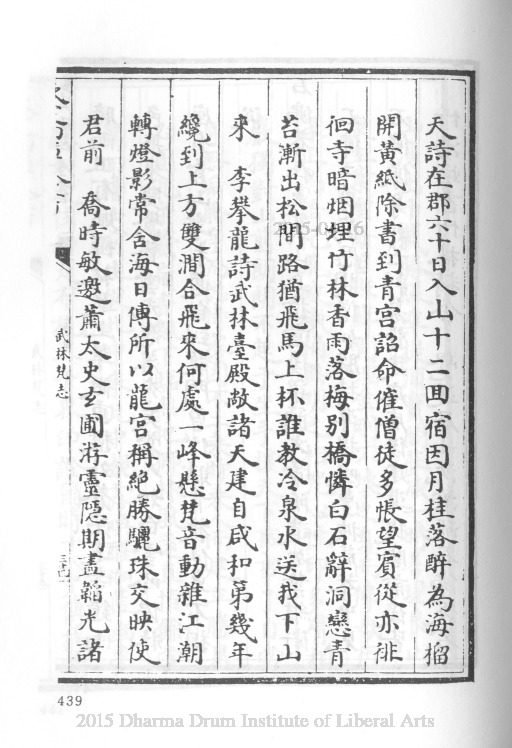 天詩在郡六十日入山十二囬宿因月桂落醉為海榴
開黃紙除書到青宮詔命催僧徒多悵望賓從亦徘
徊寺暗烟埋竹林香雨落梅別橋憐白石辭洞戀青
苔漸出松間路猶飛馬上杯誰教冷泉水送我下山
來　李攀龍詩武林臺殿敞諸天建自咸和第幾年
纔到上方雙澗合飛來何處一峰懸梵音動雜江潮
轉燈影常含海日傳所以龍宮稱絕勝驪珠交映使
君前　喬時敏邀蕭太史玄圃游靈隱期盡韜光諸
武林梵志
439
2015 Dharma Drum Institute of Liberal Arts